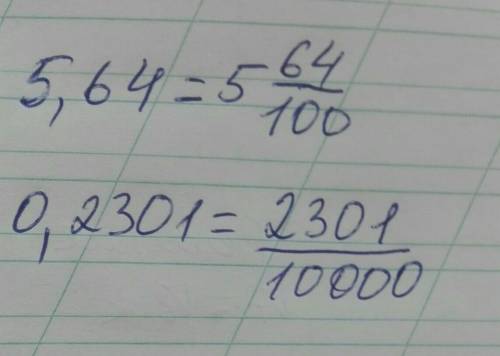 5,64 = 5 64/100
0,2301 = 2301/10000